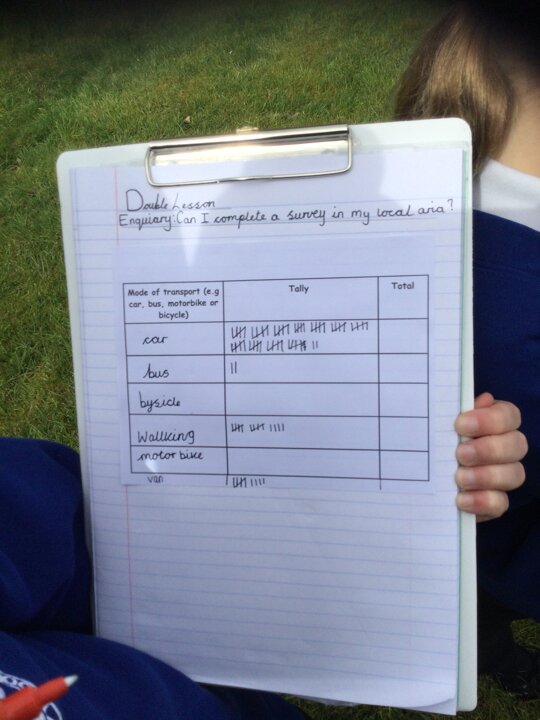 Double Lesson
Enquiary: Can I complete a survey in my local aria?
Mode of transport (e.g car, bus, motorbike or bicycle) Tally Total
car
bus
bysicle
Wallking
motor bike
van